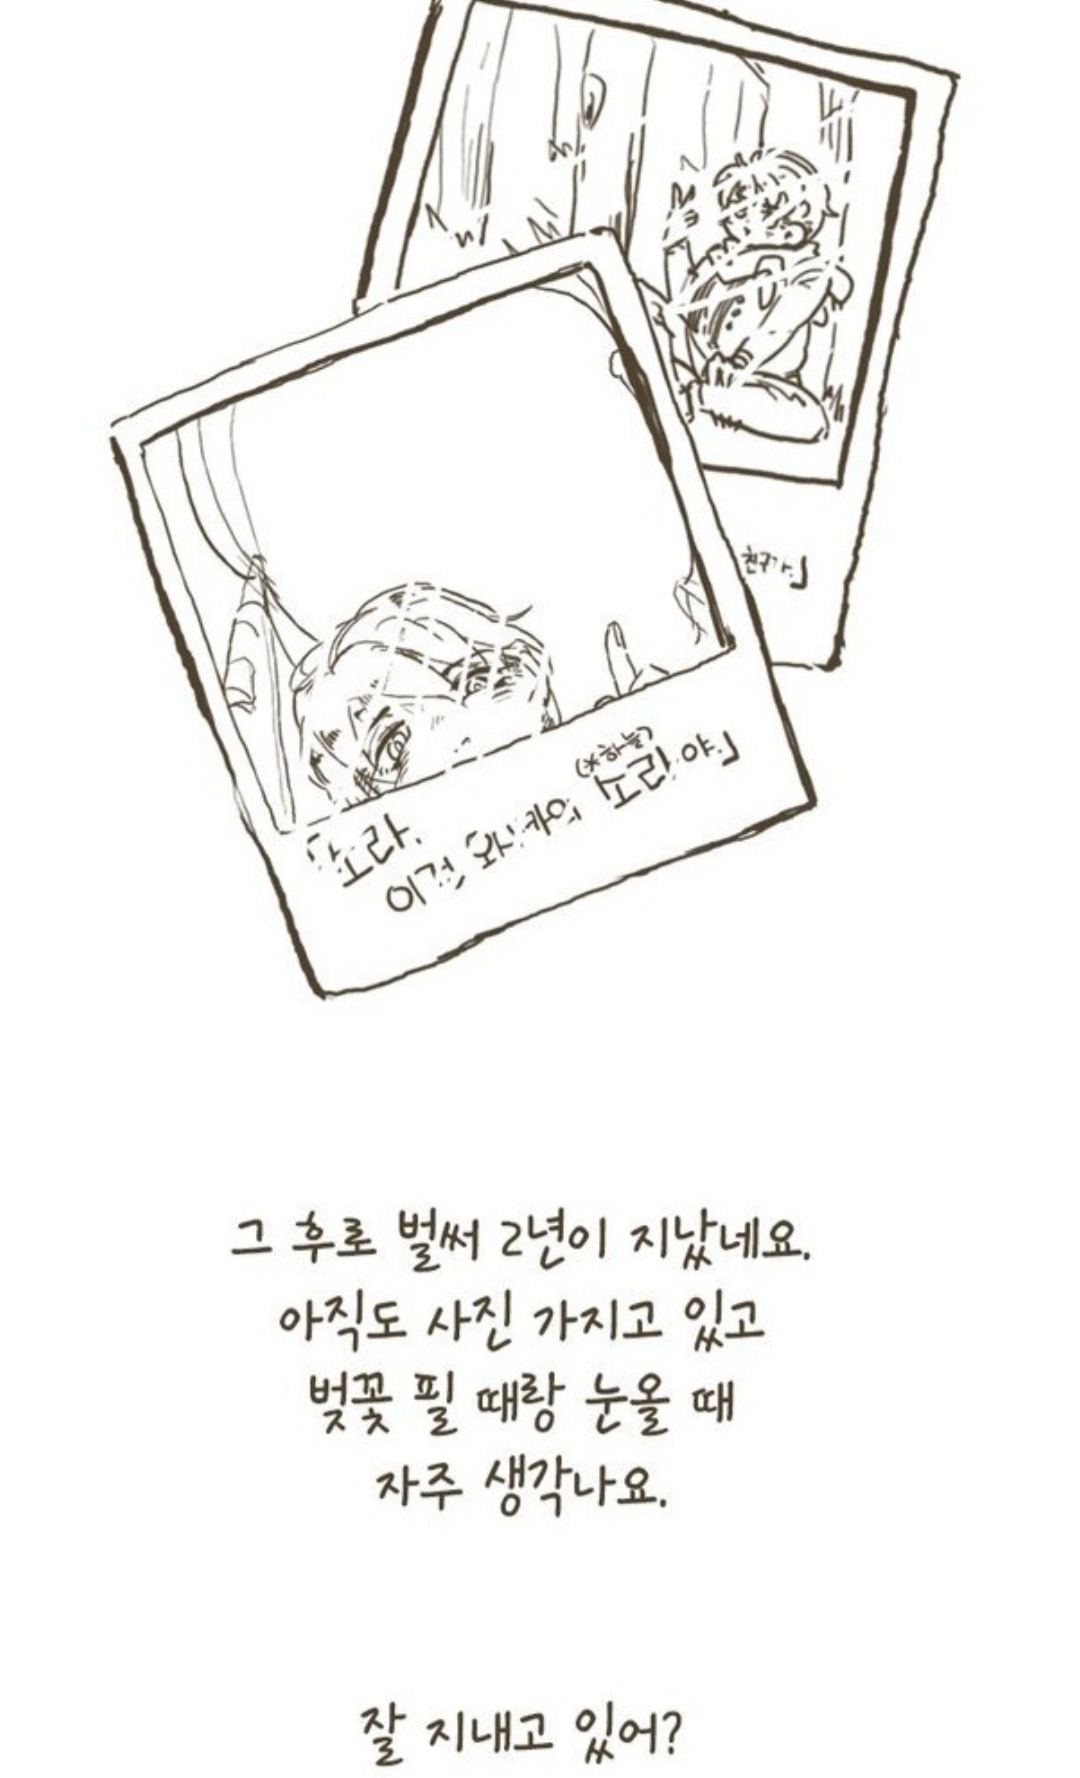 친구가」
(*하늘)
소라.
이건 와사카의 소라야」
그 후로 벌써 2년이 지났네요.
아직도 사진 가지고 있고
벚꽃 필 때랑 눈올 때
자주 생각나요.
잘 지내고 있어?